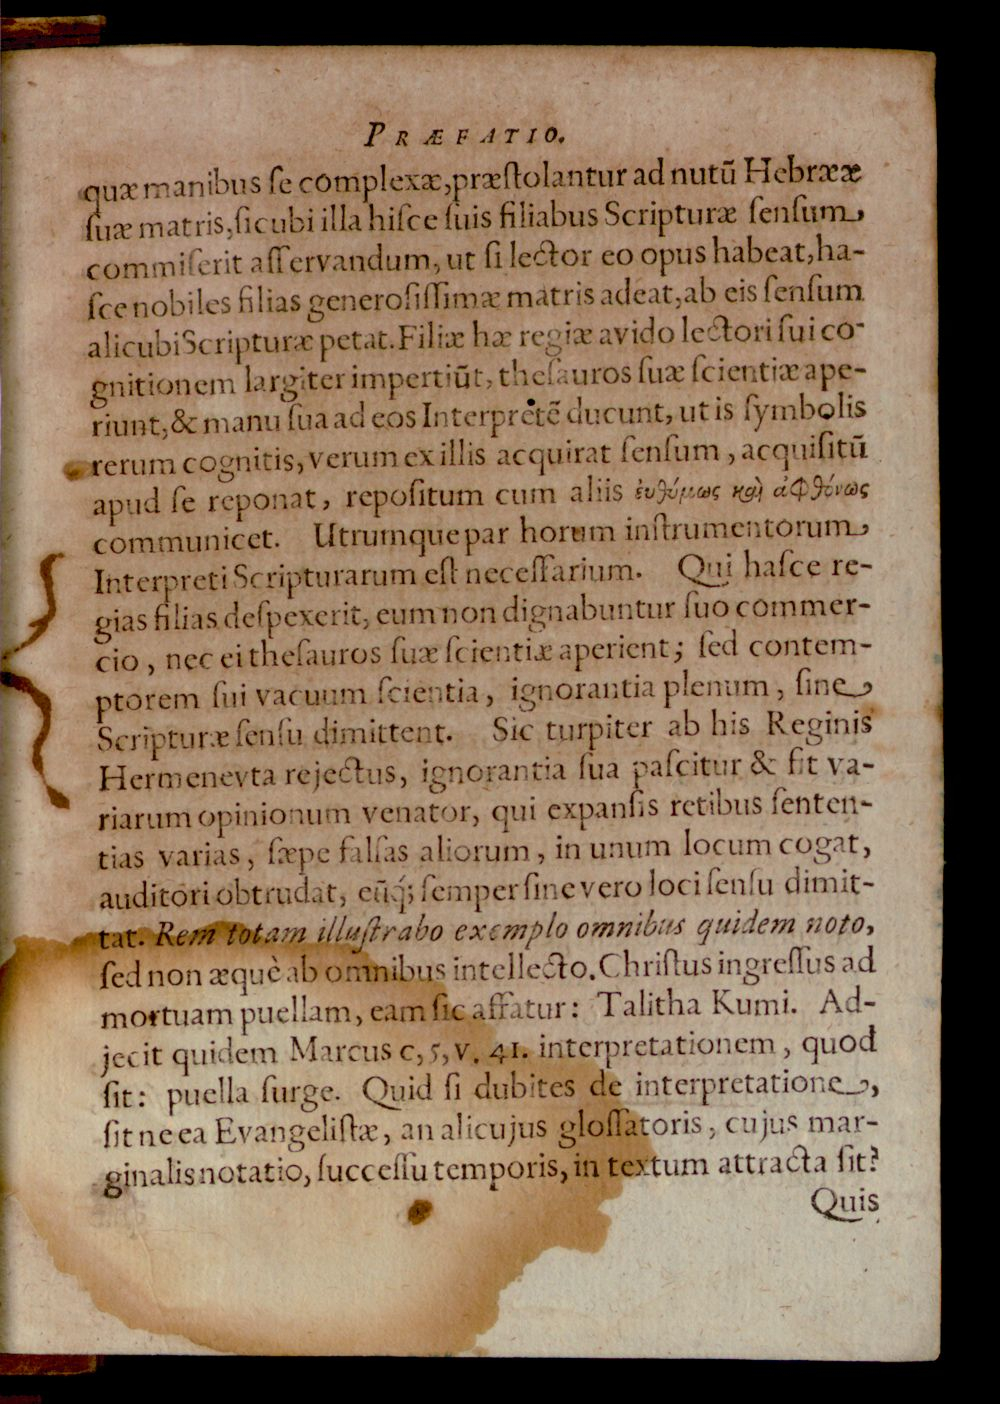 PRÆFATIO.
quæ manibus ſe complexæ, præſtolantur ad nutū Hebrææ
ſuæ matris, ſicubi illa hiſce ſuis filiabus Scripturæ ſenſum,
commiſerit aſſervandum, ut ſi lector eo opus habeat, ha-
ſce nobiles filias generoſiſſimæ matris adeat, ab eis ſenſum
alicubi Scripturæ petat. Filiæ hæ regiæ avido lectori ſui co-
gnitionem largiter impertiūt, theſauros ſuæ ſcientiæ ape-
riunt, & manu ſua ad eos Interpretē ducunt, ut is ſymbolis
rerum cognitis, verum ex illis acquirat ſenſum, acquiſitū
apud ſe reponat, repoſitum cum aliis ἐυθύμως καὶ ἀφθόνως
communicet. Utrumque par horum inſtrumentorum
Interpreti Scripturarum eſt neceſſarium. Qui haſce re-
gias filias deſpexerit, eum non dignabuntur ſuo commer-
cio, nec ei theſauros ſuæ ſcientiæ aperient; ſed contem-
ptorem ſui vacuum ſcientia, ignorantia plenum, ſine
Scripturæ ſenſu dimittent. Sic turpiter ab his Reginis
Hermenevta rejectus, ignorantia ſua paſcitur & fit va-
riarum opinionum venator, qui expanſis retibus ſenten-
tias varias, ſæpe falſas aliorum, in unum locum cogat,
auditori obtrudat, eūq́; ſemper ſine vero loci ſenſu dimit-
tat. Rem totam illuſtrabo exemplo omnibus quidem noto,
ſed non æquè ab omnibus intellecto. Chriſtus ingreſſus ad
mortuam puellam, eam ſic affatur: Talitha Kumi. Ad-
jecit quidem Marcus c, 5, v. 41. interpretationem, quod
ſit: puella ſurge. Quid ſi dubites de interpretatione,
ſit ne ea Evangeliſtæ, an alicujus gloſſatoris, cujus mar-
ginalis notatio, ſucceſſu temporis, in textum attracta ſit?
Quis